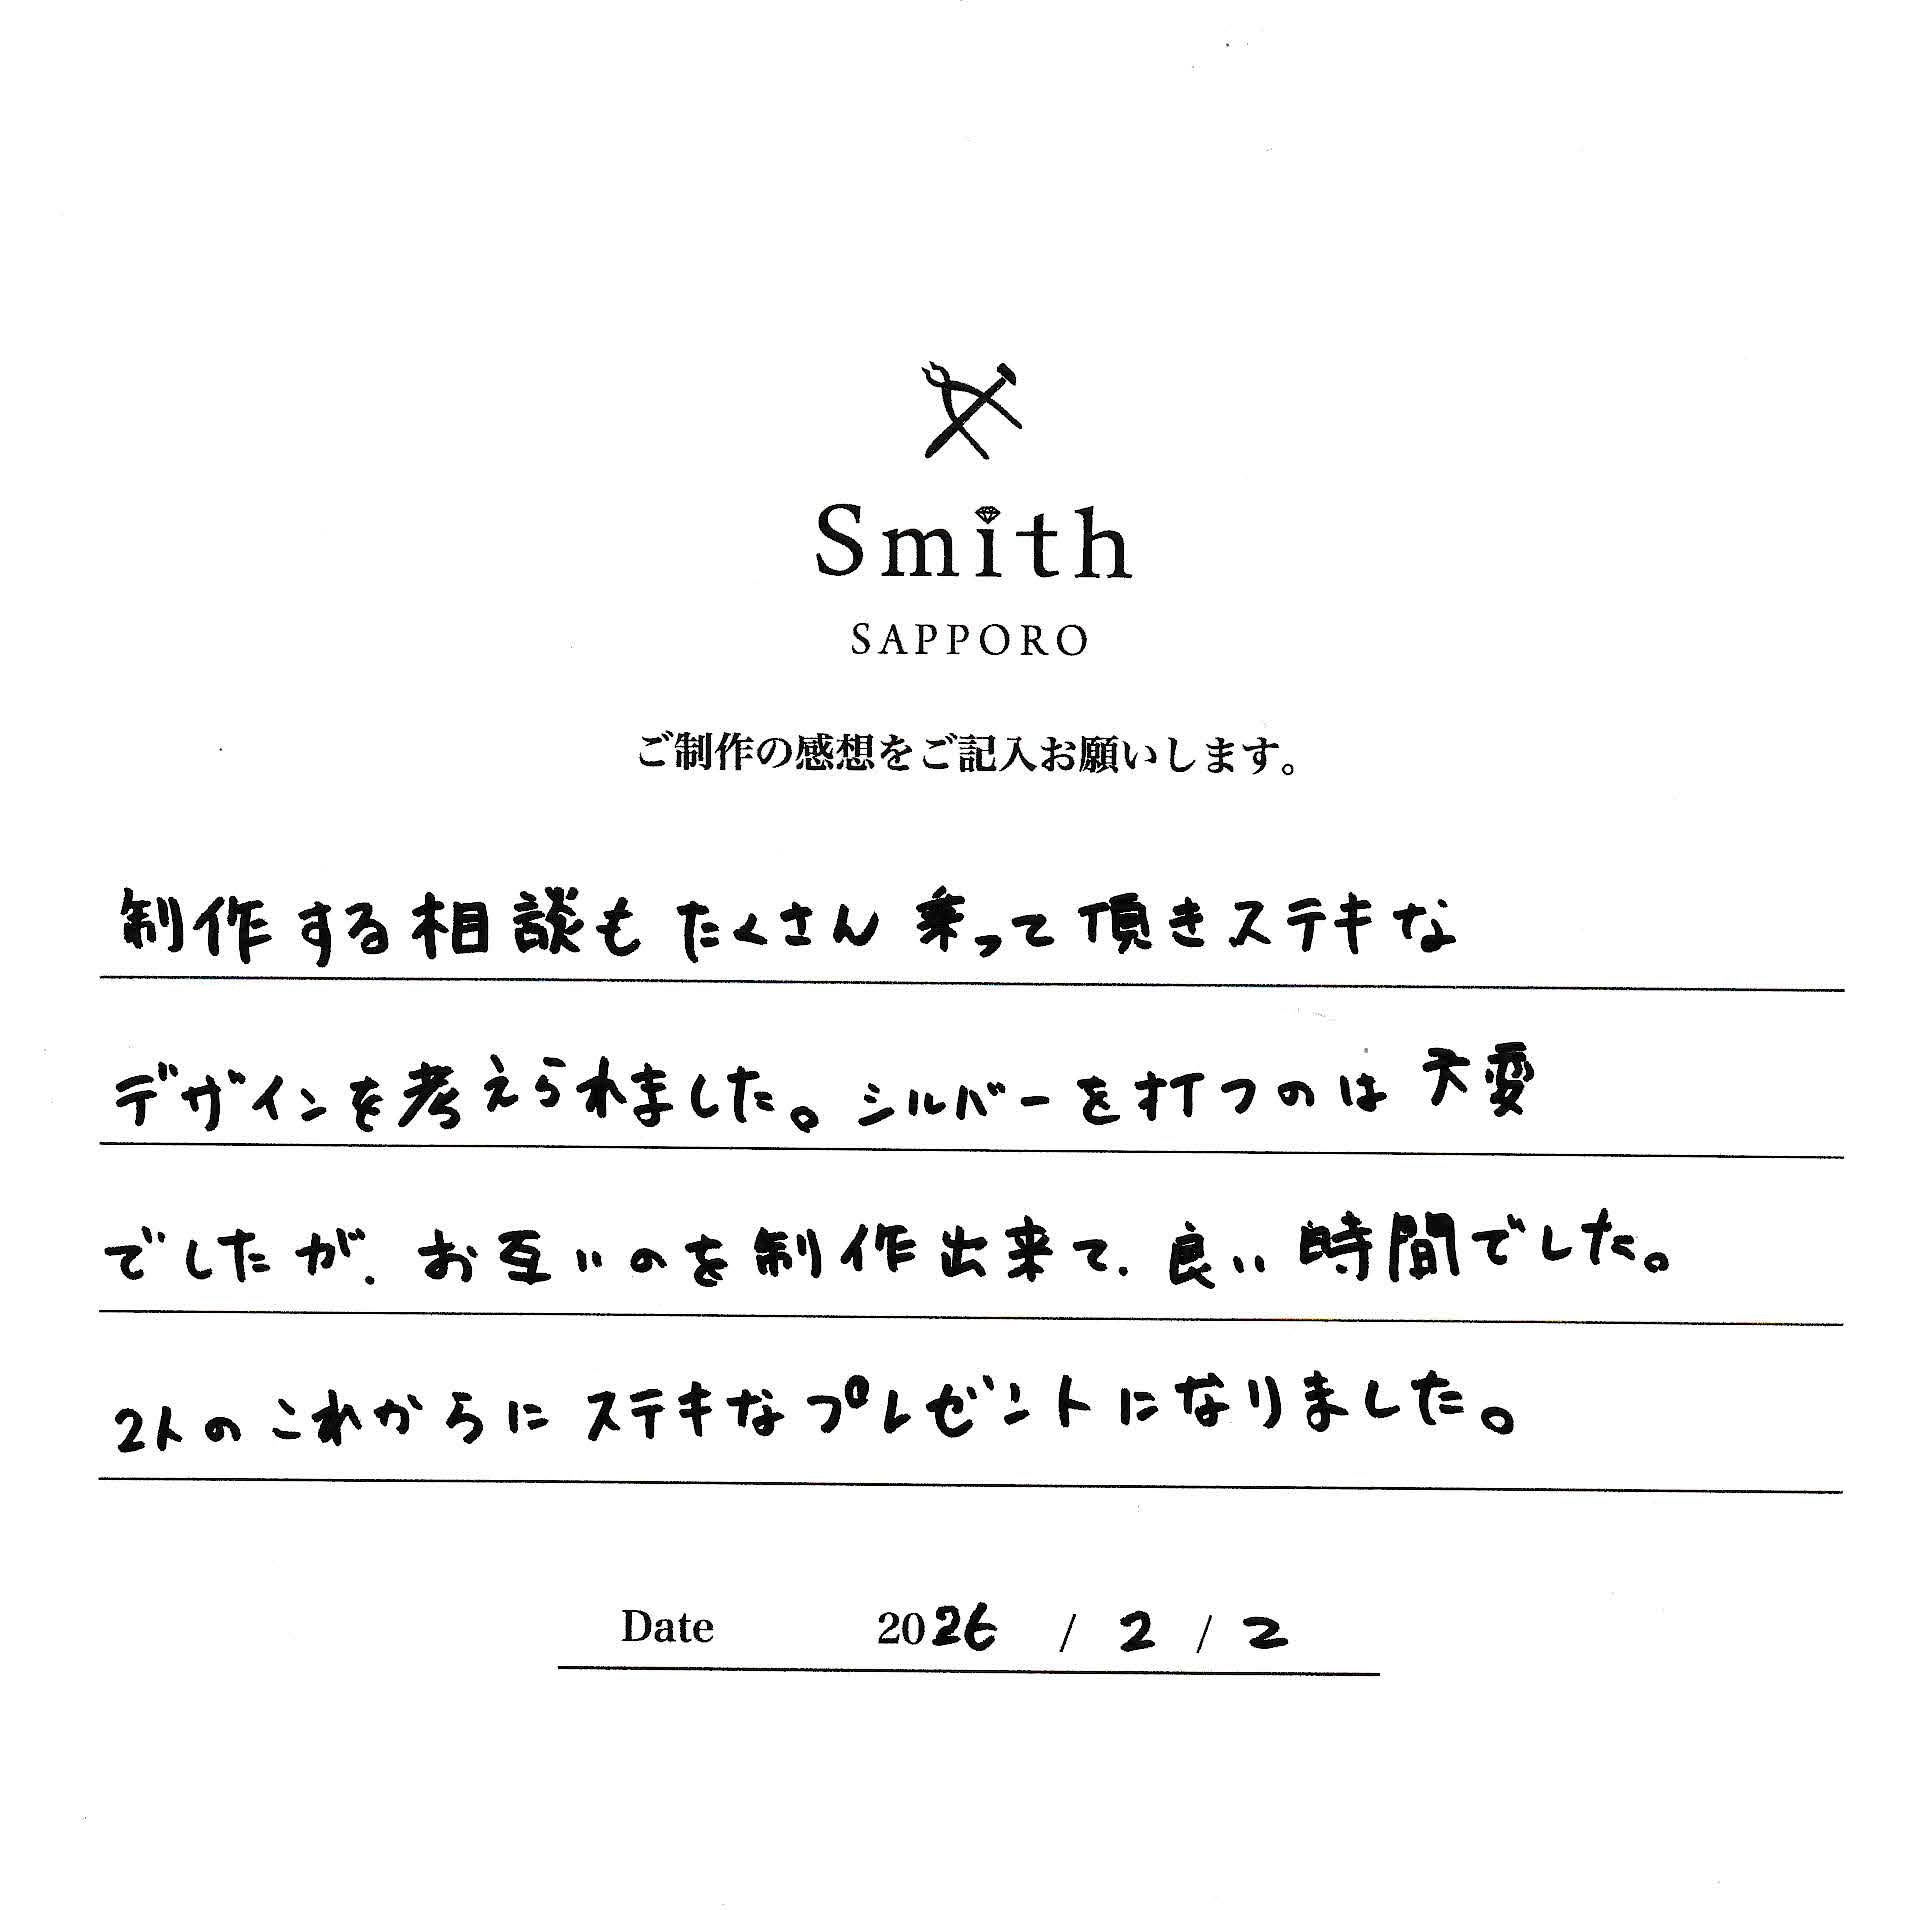 Smith
SAPPORO
ご制作の感想をご記入お願いします。
制作する相談もたくさん乗って頂きステキな
デザインを考えられました。シルバーを打つのは大変
でしたが、お互いのを制作出来て、良い時間でした。
2人のこれからにステキなプレゼントになりました。
Date 2026 / 2 / 2